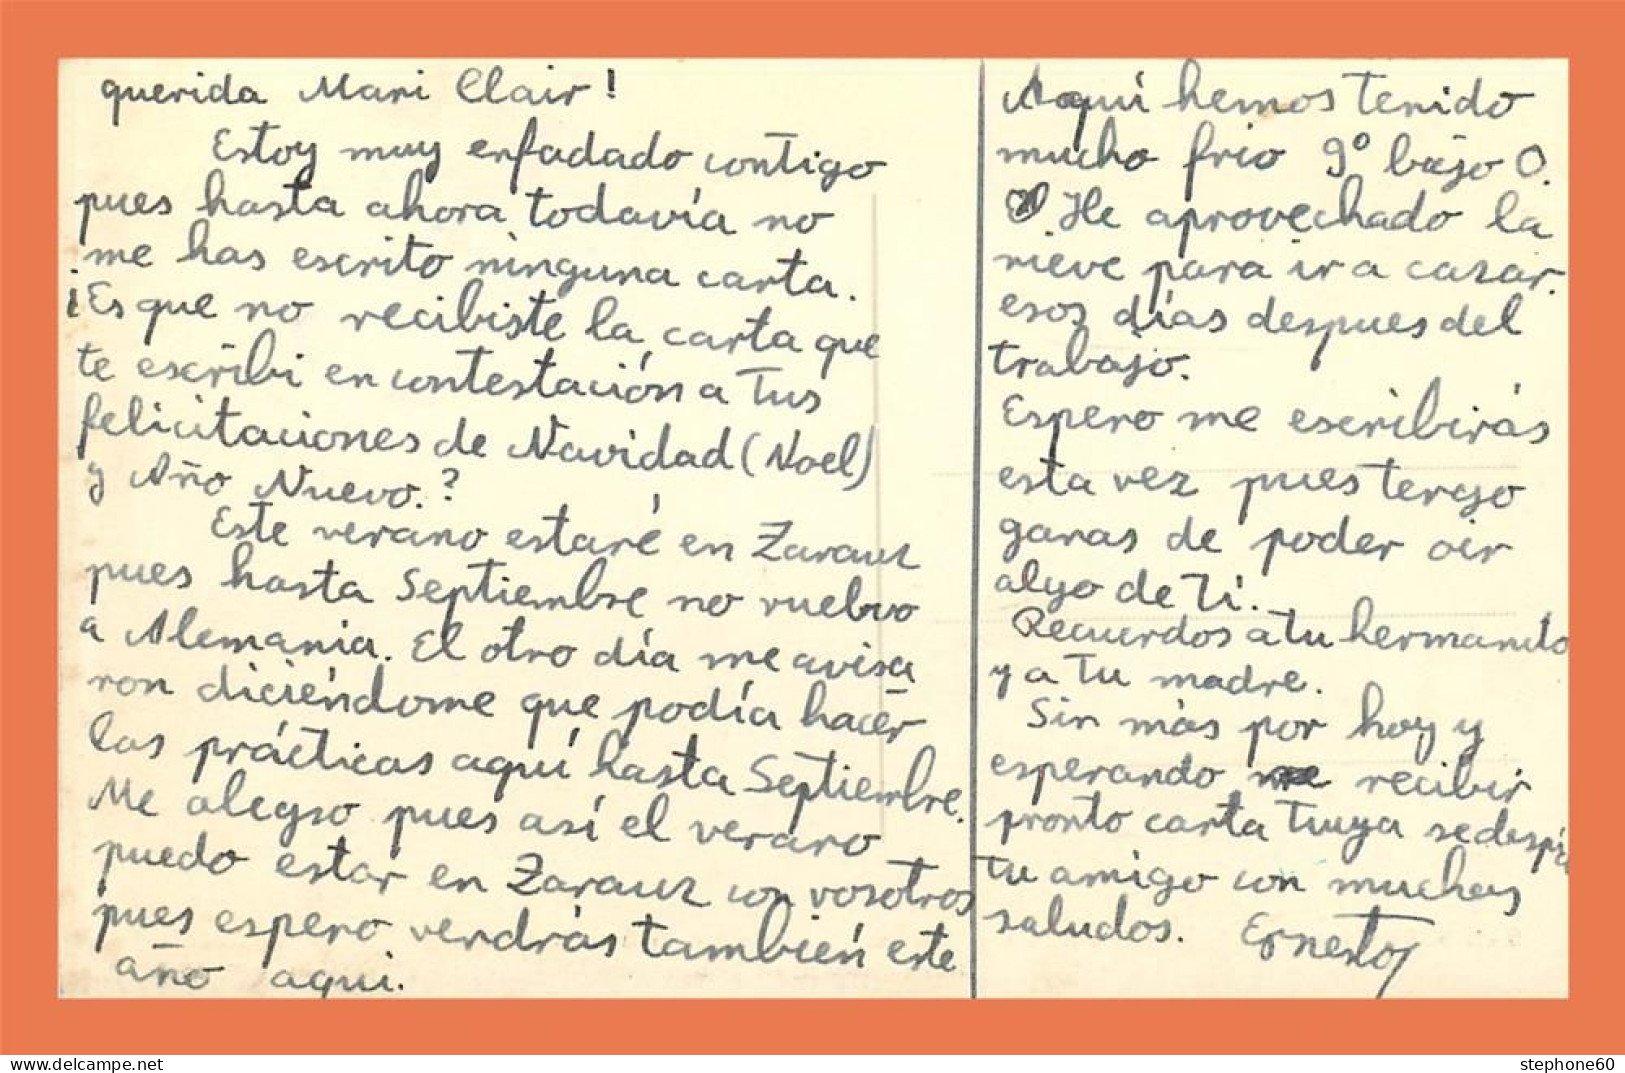 querida Mari Clair!
Estoy muy enfadado contigo
pues hasta ahora todavía no
me has escrito ninguna carta.
¡Es que no recibiste la carta que
te escribi en contestación a Tus
felicitaciones de Navidad (Noel)
y Año Nuevo.?
Este verano estaré en Zarauz
pues hasta Septiembre no vuelvo
a Alemania. El otro día me avisa
ron diciéndome que podía hacer
las prácticas aquí hasta Septiembre.
Me alegro pues así el verano
puedo estar en Zarauz con vosotros
pues espero vendrás también este
año aqui.
Aquí hemos Tenido
mucho frio 9º bajo 0.
He aprovechado la
nieve para ir a cazar.
esos días despues del
trabajo.
Espero me escribirás
esta vez pues tengo
ganas de poder oir
algo de Ti.
Recuerdos a tu hermanito
y a Tu madre.
Sin más por hoy y
esperando recibir
pronto carta Tuya se despi
Tu amigo con muchos
saludos. Ernesto
stephone60